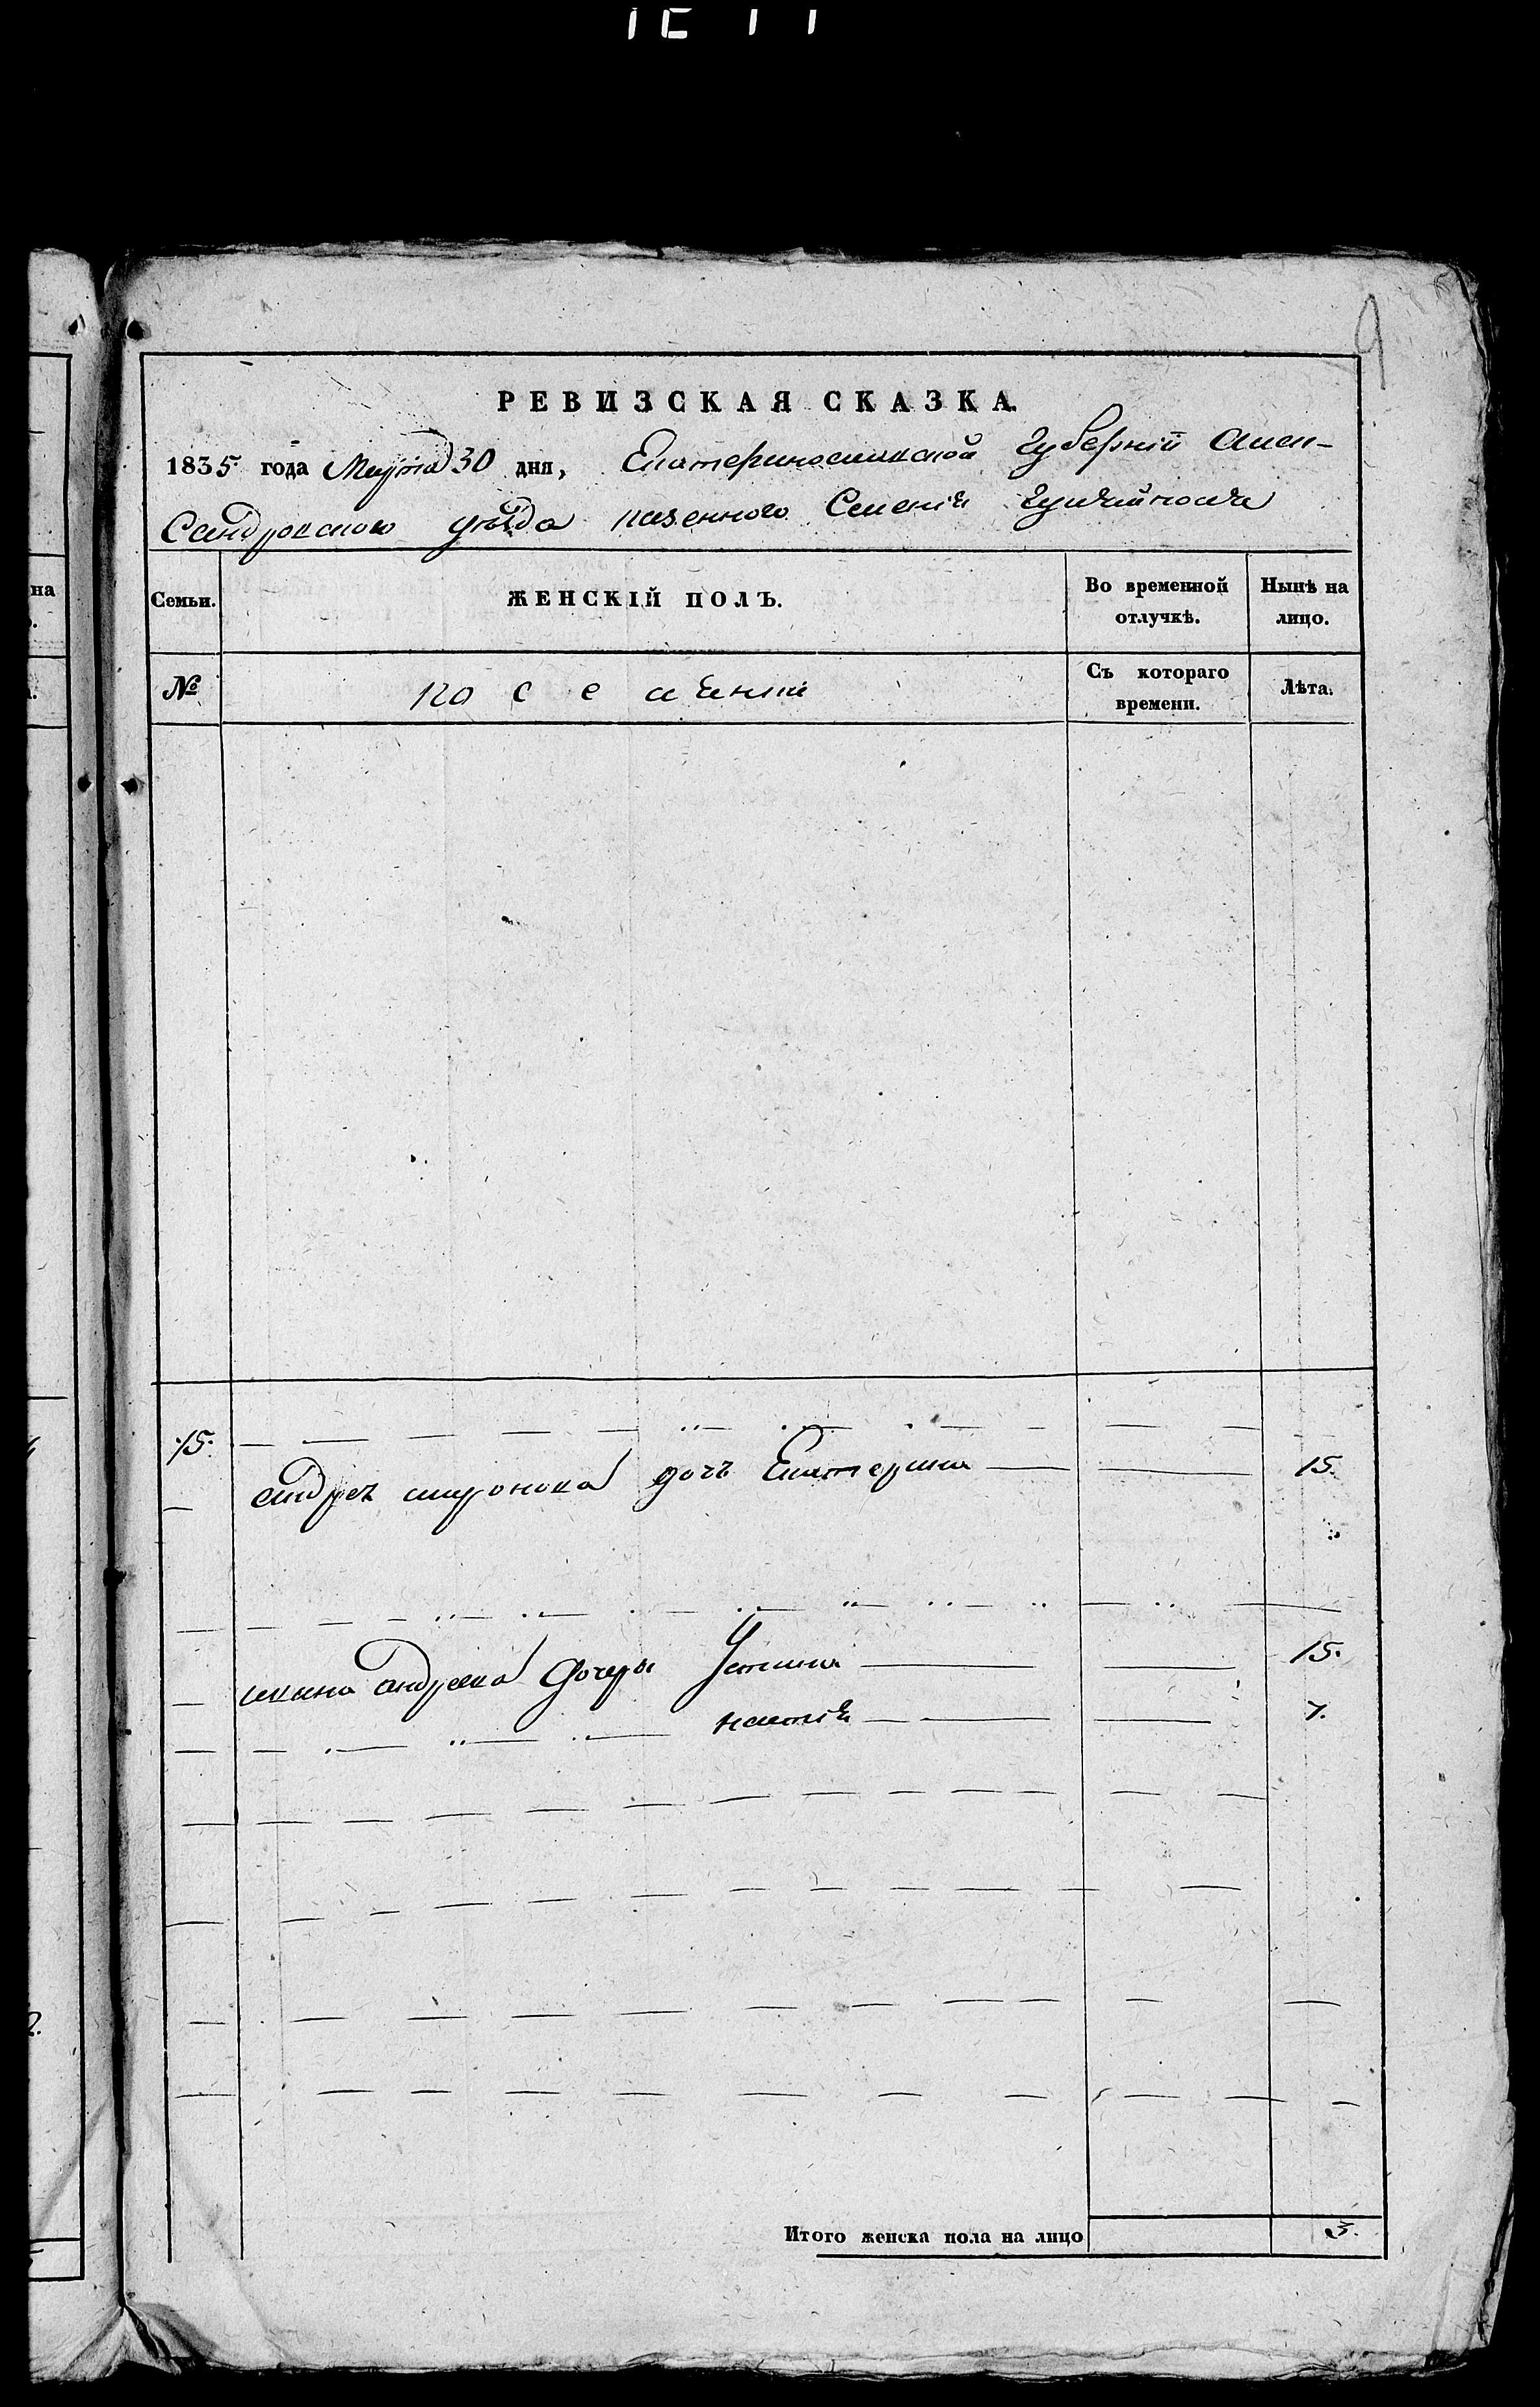 9
РЕВИЗСКАЯ СКАЗКА.
1835 года Марта 30 дня, Екатеринославской губернии Алек-
сандровского уезда казенного Селения Гуляйполя
Семьи. ЖЕНСКІЙ ПОЛЪ. Во временной отлучкѣ. Нынѣ на лицо.
№ поселяни Съ котораго времени. Лѣта.
15.
андрея миронова дочь Екатерина 15.
ивана андреева дочери Устина 15.
настія 7.
Итого женска пола на лицо 3.